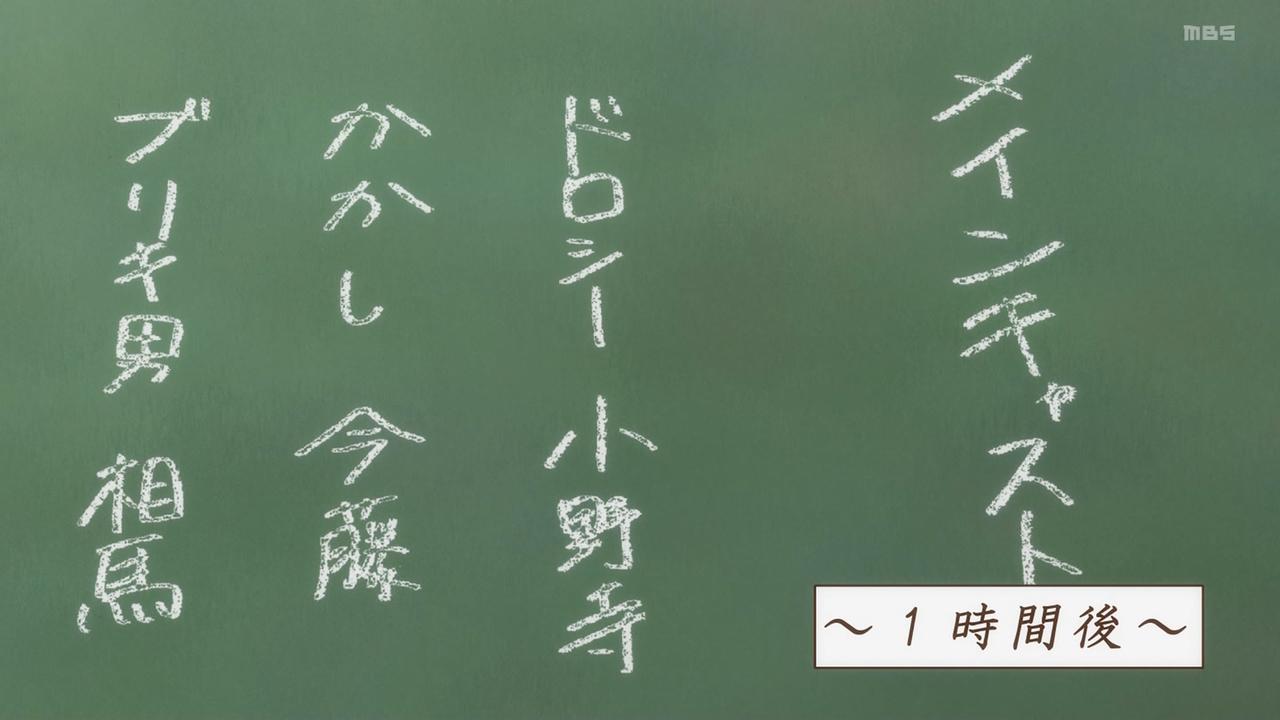 メインキャスト
ドロシー 小野寺
かかし 今藤
ブリキ男 相馬
～1時間後～
MBS